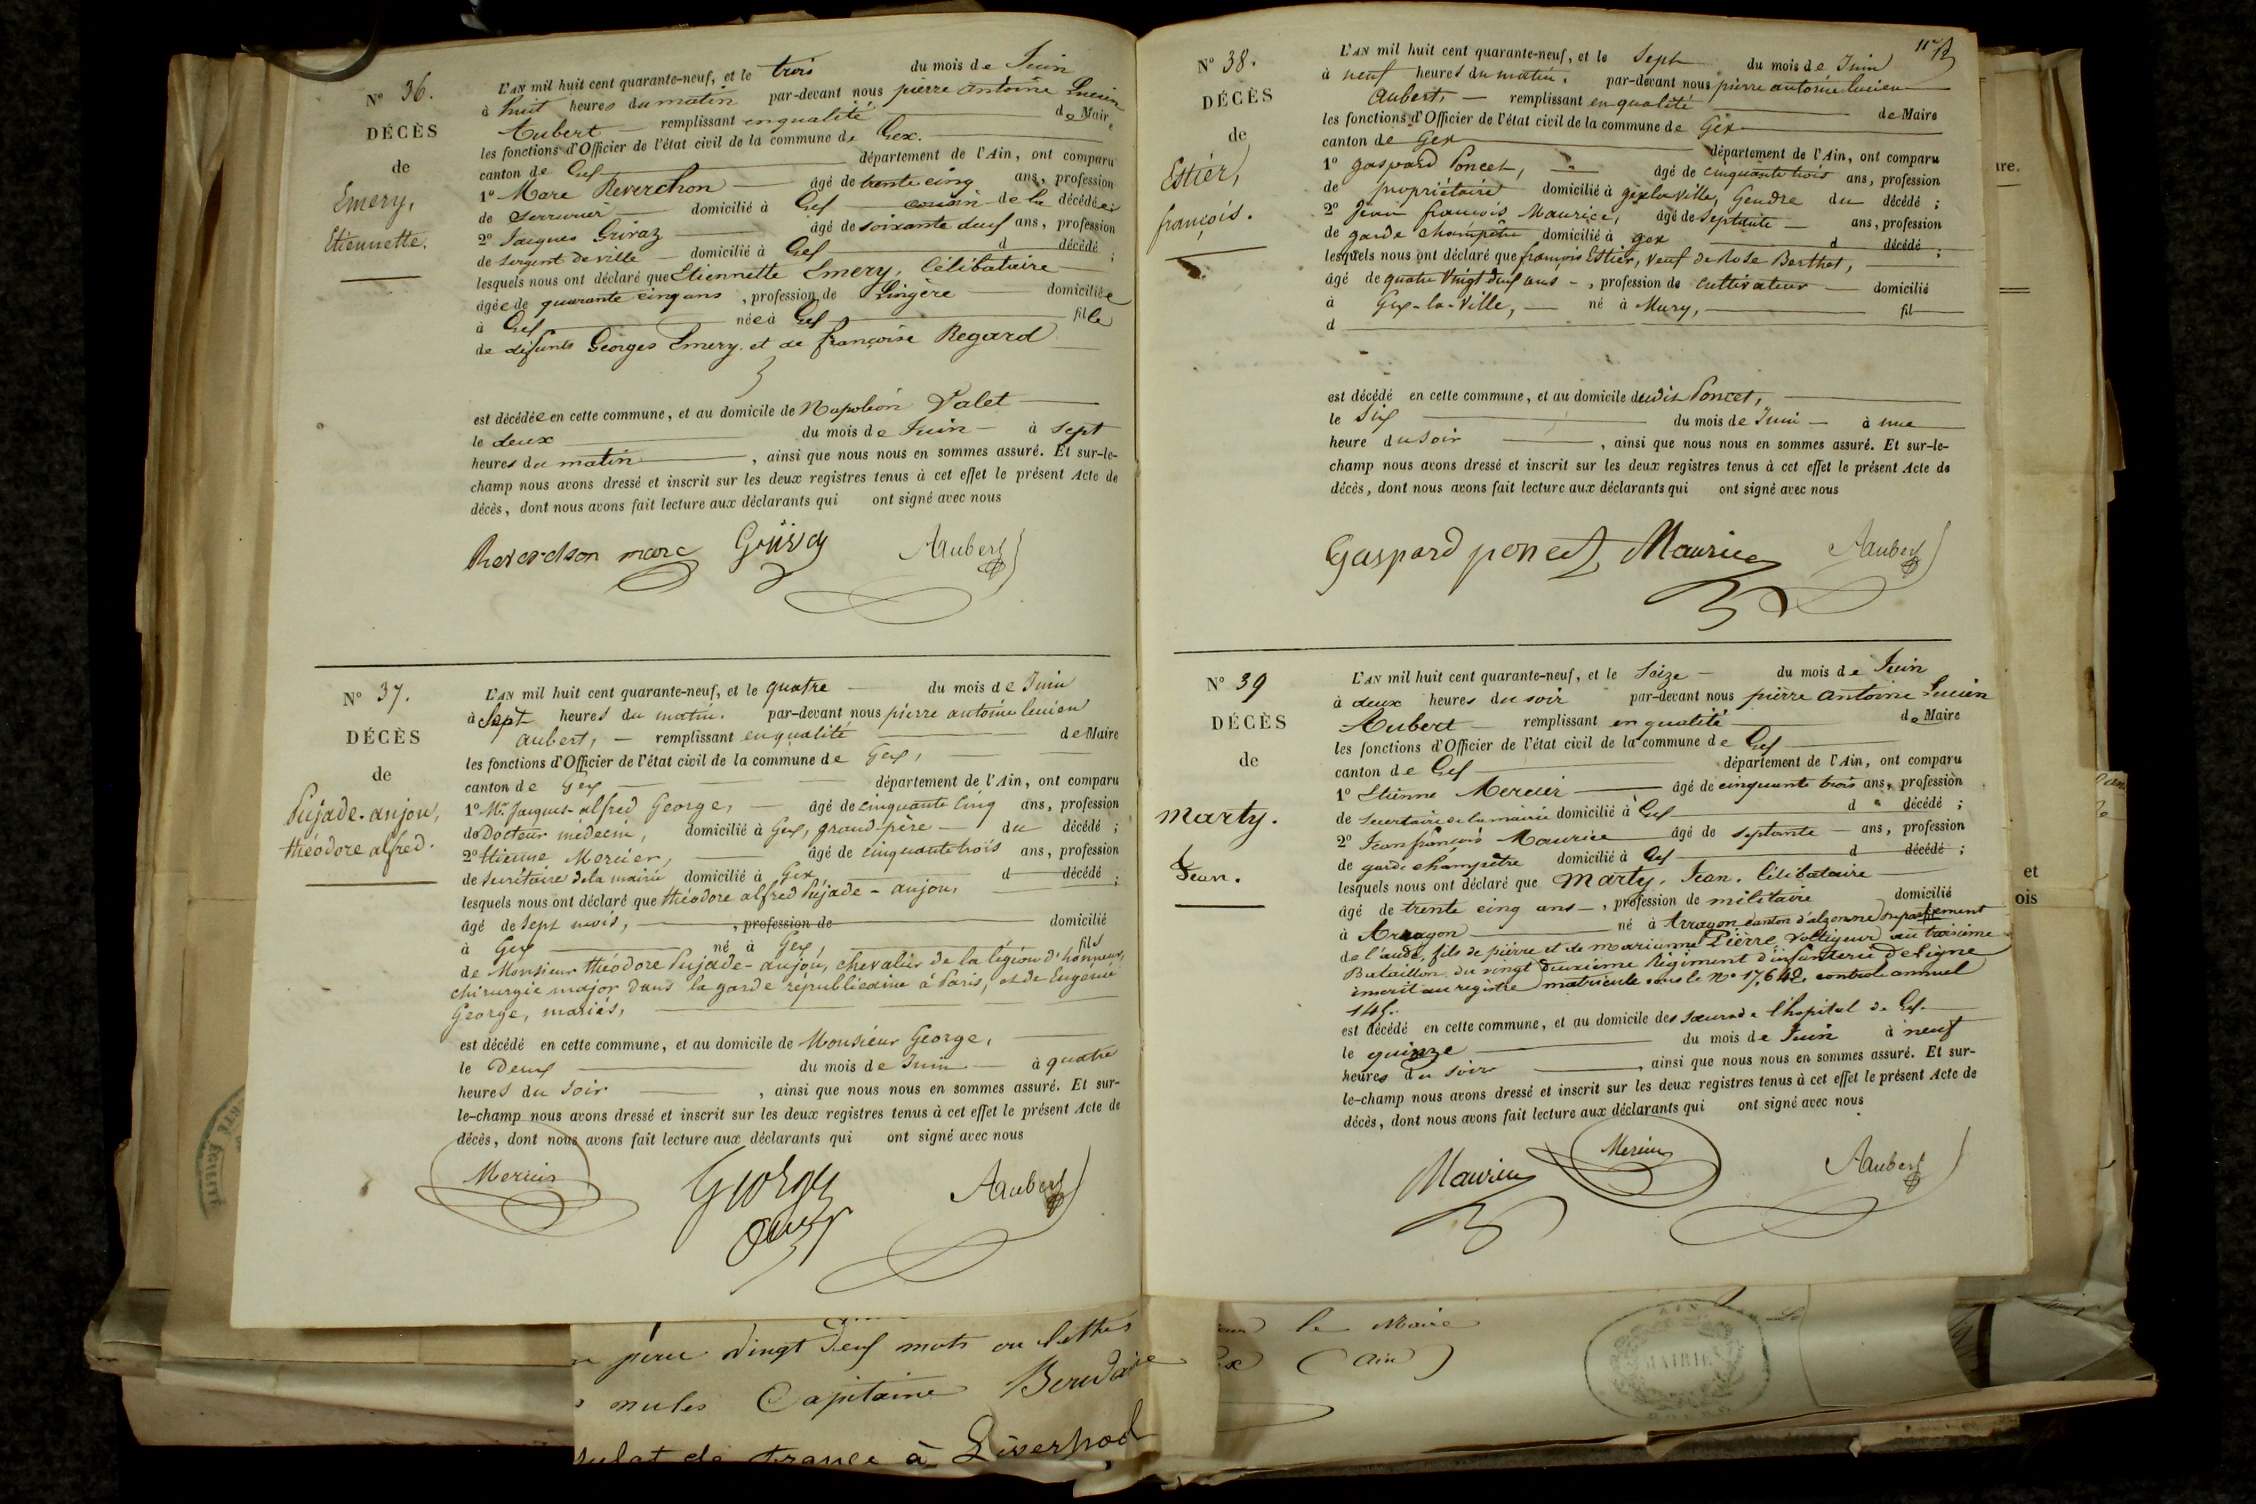 N° 36.
DÉCÈS
de
Emery,
Etiennette.
L'AN mil huit cent quarante-neuf, et le trois du mois de Juin
à huit heures du matin par-devant nous pierre Antoine Lucien
Aubert — remplissant en qualité de Maire
les fonctions d'Officier de l'état civil de la commune de Gex.
canton de Gex département de l'Ain, ont comparu
1° Marc Reverchon — âgé de trente cinq ans, profession
de Serrurier domicilié à Gex cousin de la décédée;
2° Jacques Grivaz âgé de soixante deux ans, profession
de Sergent de ville — domicilié à Gex d décédé;
lesquels nous ont déclaré que Etiennette Emery, Célibataire
âgée de quarante cinq ans, profession de Lingère domiciliée
à Gex née à Gex fille
de défunts Georges Emery et de françoise Regard
est décédée en cette commune, et au domicile de Napoléon Valet
le deux du mois de Juin — à sept
heures du matin, ainsi que nous nous en sommes assuré. Et sur-le-
champ nous avons dressé et inscrit sur les deux registres tenus à cet effet le présent Acte de
décès, dont nous avons fait lecture aux déclarants qui ont signé avec nous
Reverchon marc Grivaz AAubert
N° 37.
DÉCÈS
de
Pujade-anjou,
théodore alfred.
L'AN mil huit cent quarante-neuf, et le quatre du mois de Juin
à Sept heures du matin. par-devant nous pierre antoine lucien
aubert, — remplissant en qualité de Maire
les fonctions d'Officier de l'état civil de la commune de Gex,
canton de Gex département de l'Ain, ont comparu
1° Mr Jacques-alfred George, — âgé de cinquante cinq ans, profession
de Docteur médecin, domicilié à Gex, grand-père — du décédé;
2° Etienne Mercier, âgé de cinquante trois ans, profession
de Secrétaire de la mairie domicilié à Gex d décédé;
lesquels nous ont déclaré que théodore alfred Pujade-anjou,
âgé de sept mois, , profession de domicilié
à Gex né à Gex, fils
de Monsieur théodore Pujade-anjou, chevalier de la légion d'honneur,
chirurgie major dans la garde républicaine à Paris, et de Eugenie
George, mariés,
est décédé en cette commune, et au domicile de Monsieur George,
le Deux du mois de Juin — à quatre
heures du soir, ainsi que nous nous en sommes assuré. Et sur-
le-champ nous avons dressé et inscrit sur les deux registres tenus à cet effet le présent Acte de
décès, dont nous avons fait lecture aux déclarants qui ont signé avec nous
Mercier George AAubert
N° 38.
DÉCÈS
de
Estier,
françois.
L'AN mil huit cent quarante-neuf, et le Sept du mois de Juin
à neuf heures du matin. par-devant nous pierre antoine lucien
Aubert, — remplissant en qualité de Maire
les fonctions d'Officier de l'état civil de la commune de Gex
canton de Gex département de l'Ain, ont comparu
1° gaspard Poncet, âgé de cinquante trois ans, profession
de propriétaire domicilié à gex la ville, Gendre du décédé;
2° Jean françois Maurice, âgé de Septante — ans, profession
de garde champêtre domicilié à gex d décédé;
lesquels nous ont déclaré que françois Estier, veuf de Rose Berthet,
âgé de quatre Vingt deux ans -, profession de cultivateur — domicilié
à Gex-la-Ville, — né à Mury, fil
d
est décédé en cette commune, et au domicile dudit Poncet,
le Six du mois de Juin — à une
heure du soir, ainsi que nous nous en sommes assuré. Et sur-le-
champ nous avons dressé et inscrit sur les deux registres tenus à cet effet le présent Acte de
décès, dont nous avons fait lecture aux déclarants qui ont signé avec nous
Gaspard poncet, Maurice AAubert
N° 39
DÉCÈS
de
Marty.
Jean.
L'AN mil huit cent quarante-neuf, et le Seize — du mois de Juin
à deux heures du soir par-devant nous pierre Antoine Lucien
Aubert — remplissant en qualité de Maire
les fonctions d'Officier de l'état civil de la commune de Gex
canton de Gex département de l'Ain, ont comparu
1° Etienne Mercier âgé de cinquante trois ans, profession
de secrétaire de la mairie domicilié à Gex d décédé;
2° Jean françois Maurice âgé de septante — ans, profession
de garde champêtre domicilié à Gex d décédé;
lesquels nous ont déclaré que Marty, Jean, Célibataire
âgé de trente cinq ans —, profession de militaire domicilié
à Arragon né à Arragon canton d'alzonne département
de l'aude, fils de pierre et de marianne Pierre, Voltigeur au troisième
Bataillon du vingt deuxième Régiment d'infanterie De Ligne
inscrit au registre matricule sous le N° 17,642, control annuel
145.
est décédé en cette commune, et au domicile des sœurs de l'hopital de Gex
le quinze du mois de Juin à neuf
heures du soir, ainsi que nous nous en sommes assuré. Et sur-
le-champ nous avons dressé et inscrit sur les deux registres tenus à cet effet le présent Acte de
décès, dont nous avons fait lecture aux déclarants qui ont signé avec nous
Maurice Mercier AAubert
et
ois
vingt deux mots ou lettres
nules Capitaine
de France à Liverpool
le Maire
(Ain)
MAIRIE